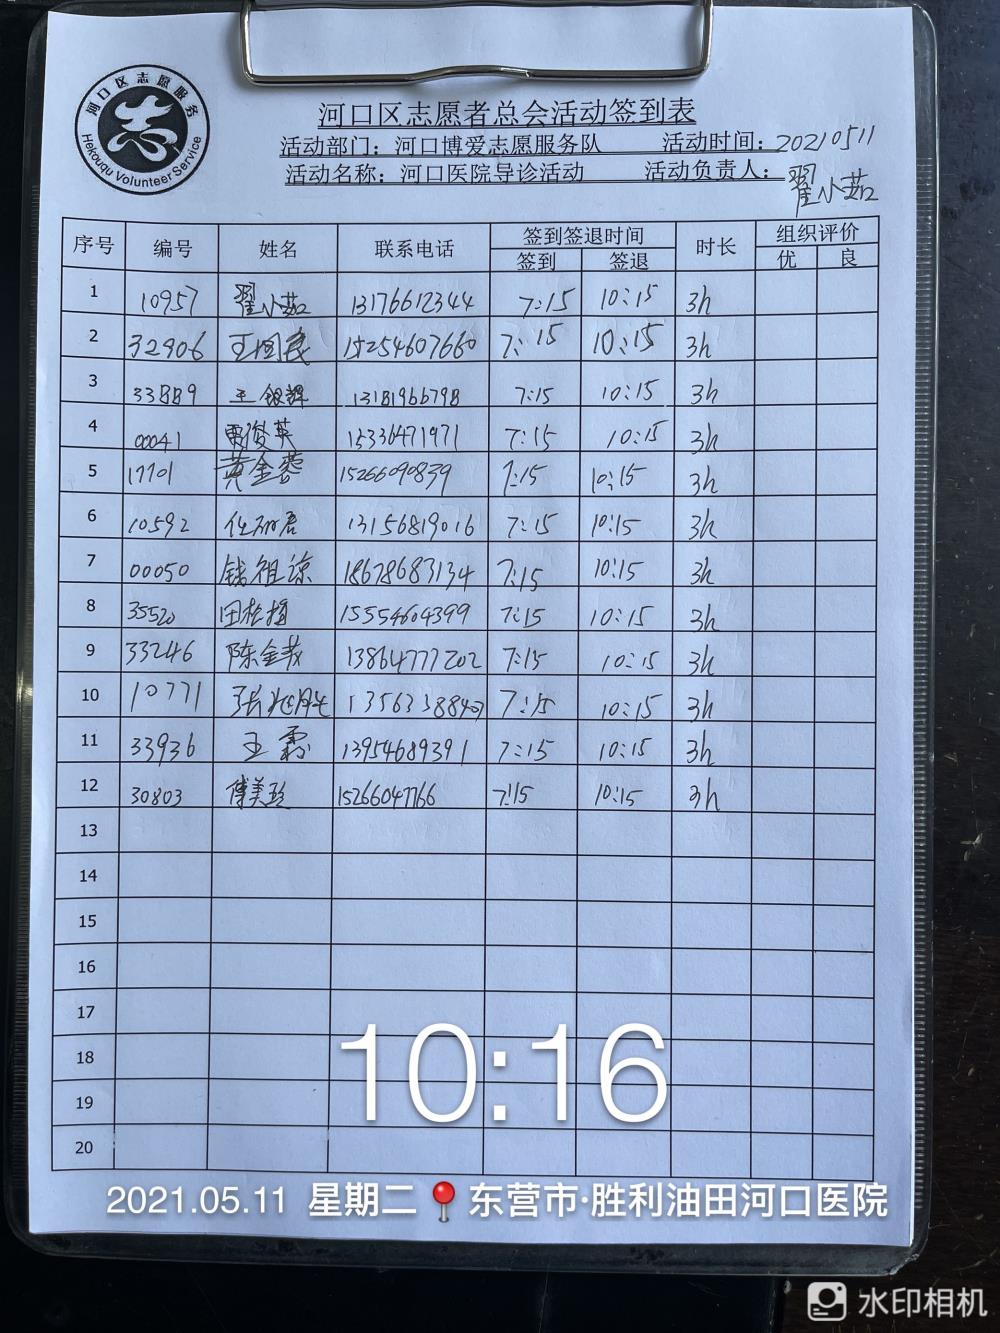 河口区志愿服务
Hekouqu Volunteer Service
河口区志愿者总会活动签到表
活动部门：河口博爱志愿服务队 活动时间：20210511
活动名称：河口医院导诊活动 活动负责人：翟小茹
序号 编号 姓名 联系电话 签到签退时间 时长 组织评价
签到 签退 优 良
1 10957 翟小茹 13176612344 7:15 10:15 3h
2 32906 王国良 15254607660 7:15 10:15 3h
3 33889 王银辉 13181966798 7:15 10:15 3h
4 00041 贾俊英 15336471971 7:15 10:15 3h
5 17701 黄金蓉 15266090839 7:15 10:15 3h
6 10592 任 13156819016 7:15 10:15 3h
7 00050 钱祖谅 18678683134 7:15 10:15 3h
8 35520 田 15554604399 7:15 10:15 3h
9 33246 陈金 13864777202 7:15 10:15 3h
10 10771 张兆 7:15 10:15 3h
11 33936 王霞 13954689391 7:15 10:15 3h
12 30803 傅美玲 15266047766 7:15 10:15 3h
13
14
15
16
17
18
19
20
10:16
2021.05.11 星期二 东营市·胜利油田河口医院
水印相机